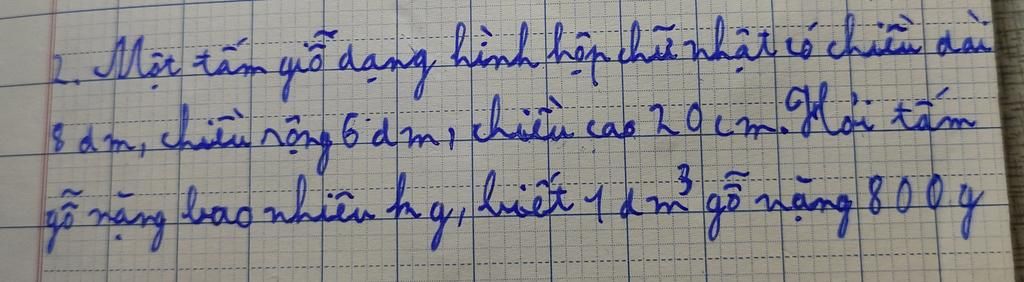 2. Một tấm gỗ dạng hình hộp chữ nhật có chiều dài
8 dm, chiều rộng 6 dm, chiều cao 20 cm. Hỏi tấm
gỗ nặng bao nhiêu kg, biết 1 dm³ gỗ nặng 800 g